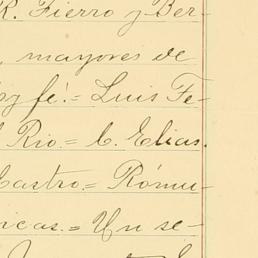 R. Fierro y Ber-
, mayores de
oy fé.= Luis Fe-
l Rio.= C. Elias.
Castro.= Rómu-
icas.= Un se-